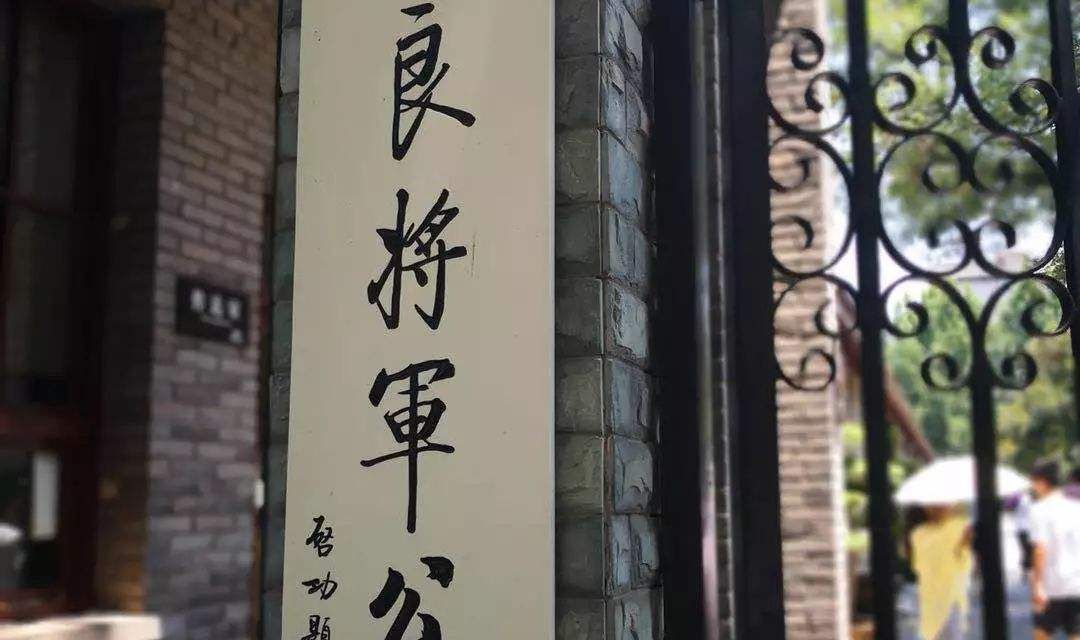 良將軍公
啓功題